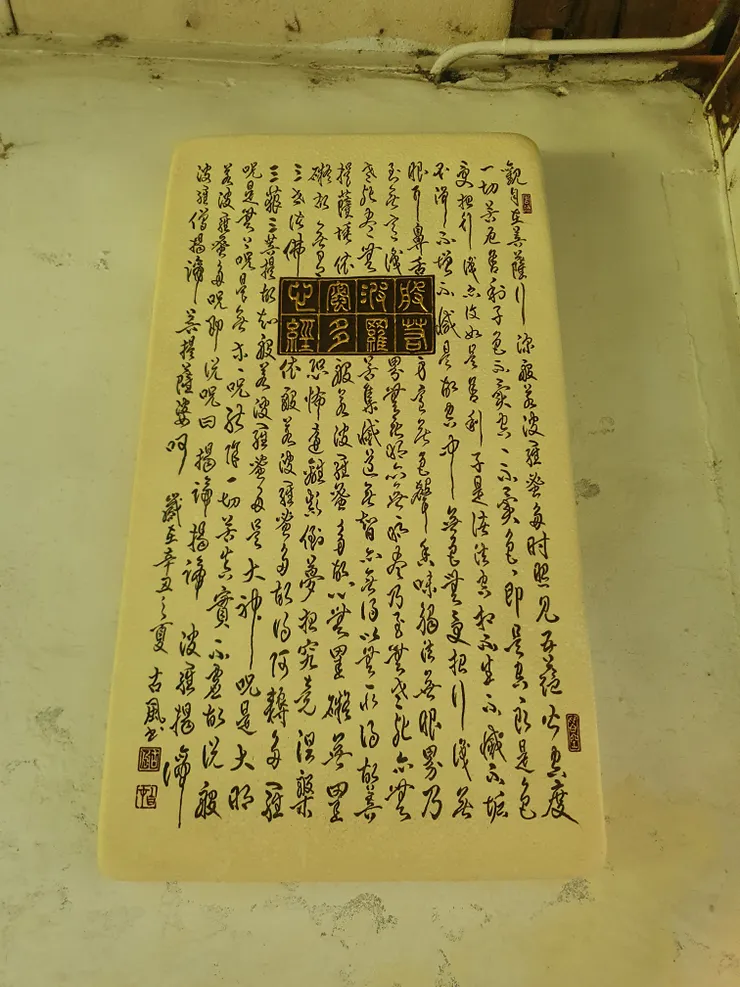 觀自在菩薩行深般若波羅蜜多時照見五蘊皆空度
一切苦厄舍利子色不異空々不異色々即是空々即是色
受想行識亦復如是舍利子是諸法空相不生不滅不垢
不淨不增不減是故空中無色無受想行識無
眼耳鼻舌身意無色聲香味觸法無眼界乃
至無意識界無無明亦無無明盡乃至無老死亦無
老死盡無苦集滅道無智亦無得以無所得故菩
提薩埵依般若波羅蜜多故心無罣礙無罣
礙故無有恐怖遠離顛倒夢想究竟涅槃
三世諸佛依般若波羅蜜多故得阿耨多羅
三藐三菩提故知般若波羅蜜多是大神呪是大明
呪是無上呪是無等々呪能除一切苦真實不虛故說般
若波羅蜜多呪即說呪曰揭諦揭諦波羅揭諦
波羅僧揭諦菩提薩婆呵歲在辛丑之夏古風書
般若波羅蜜多心經